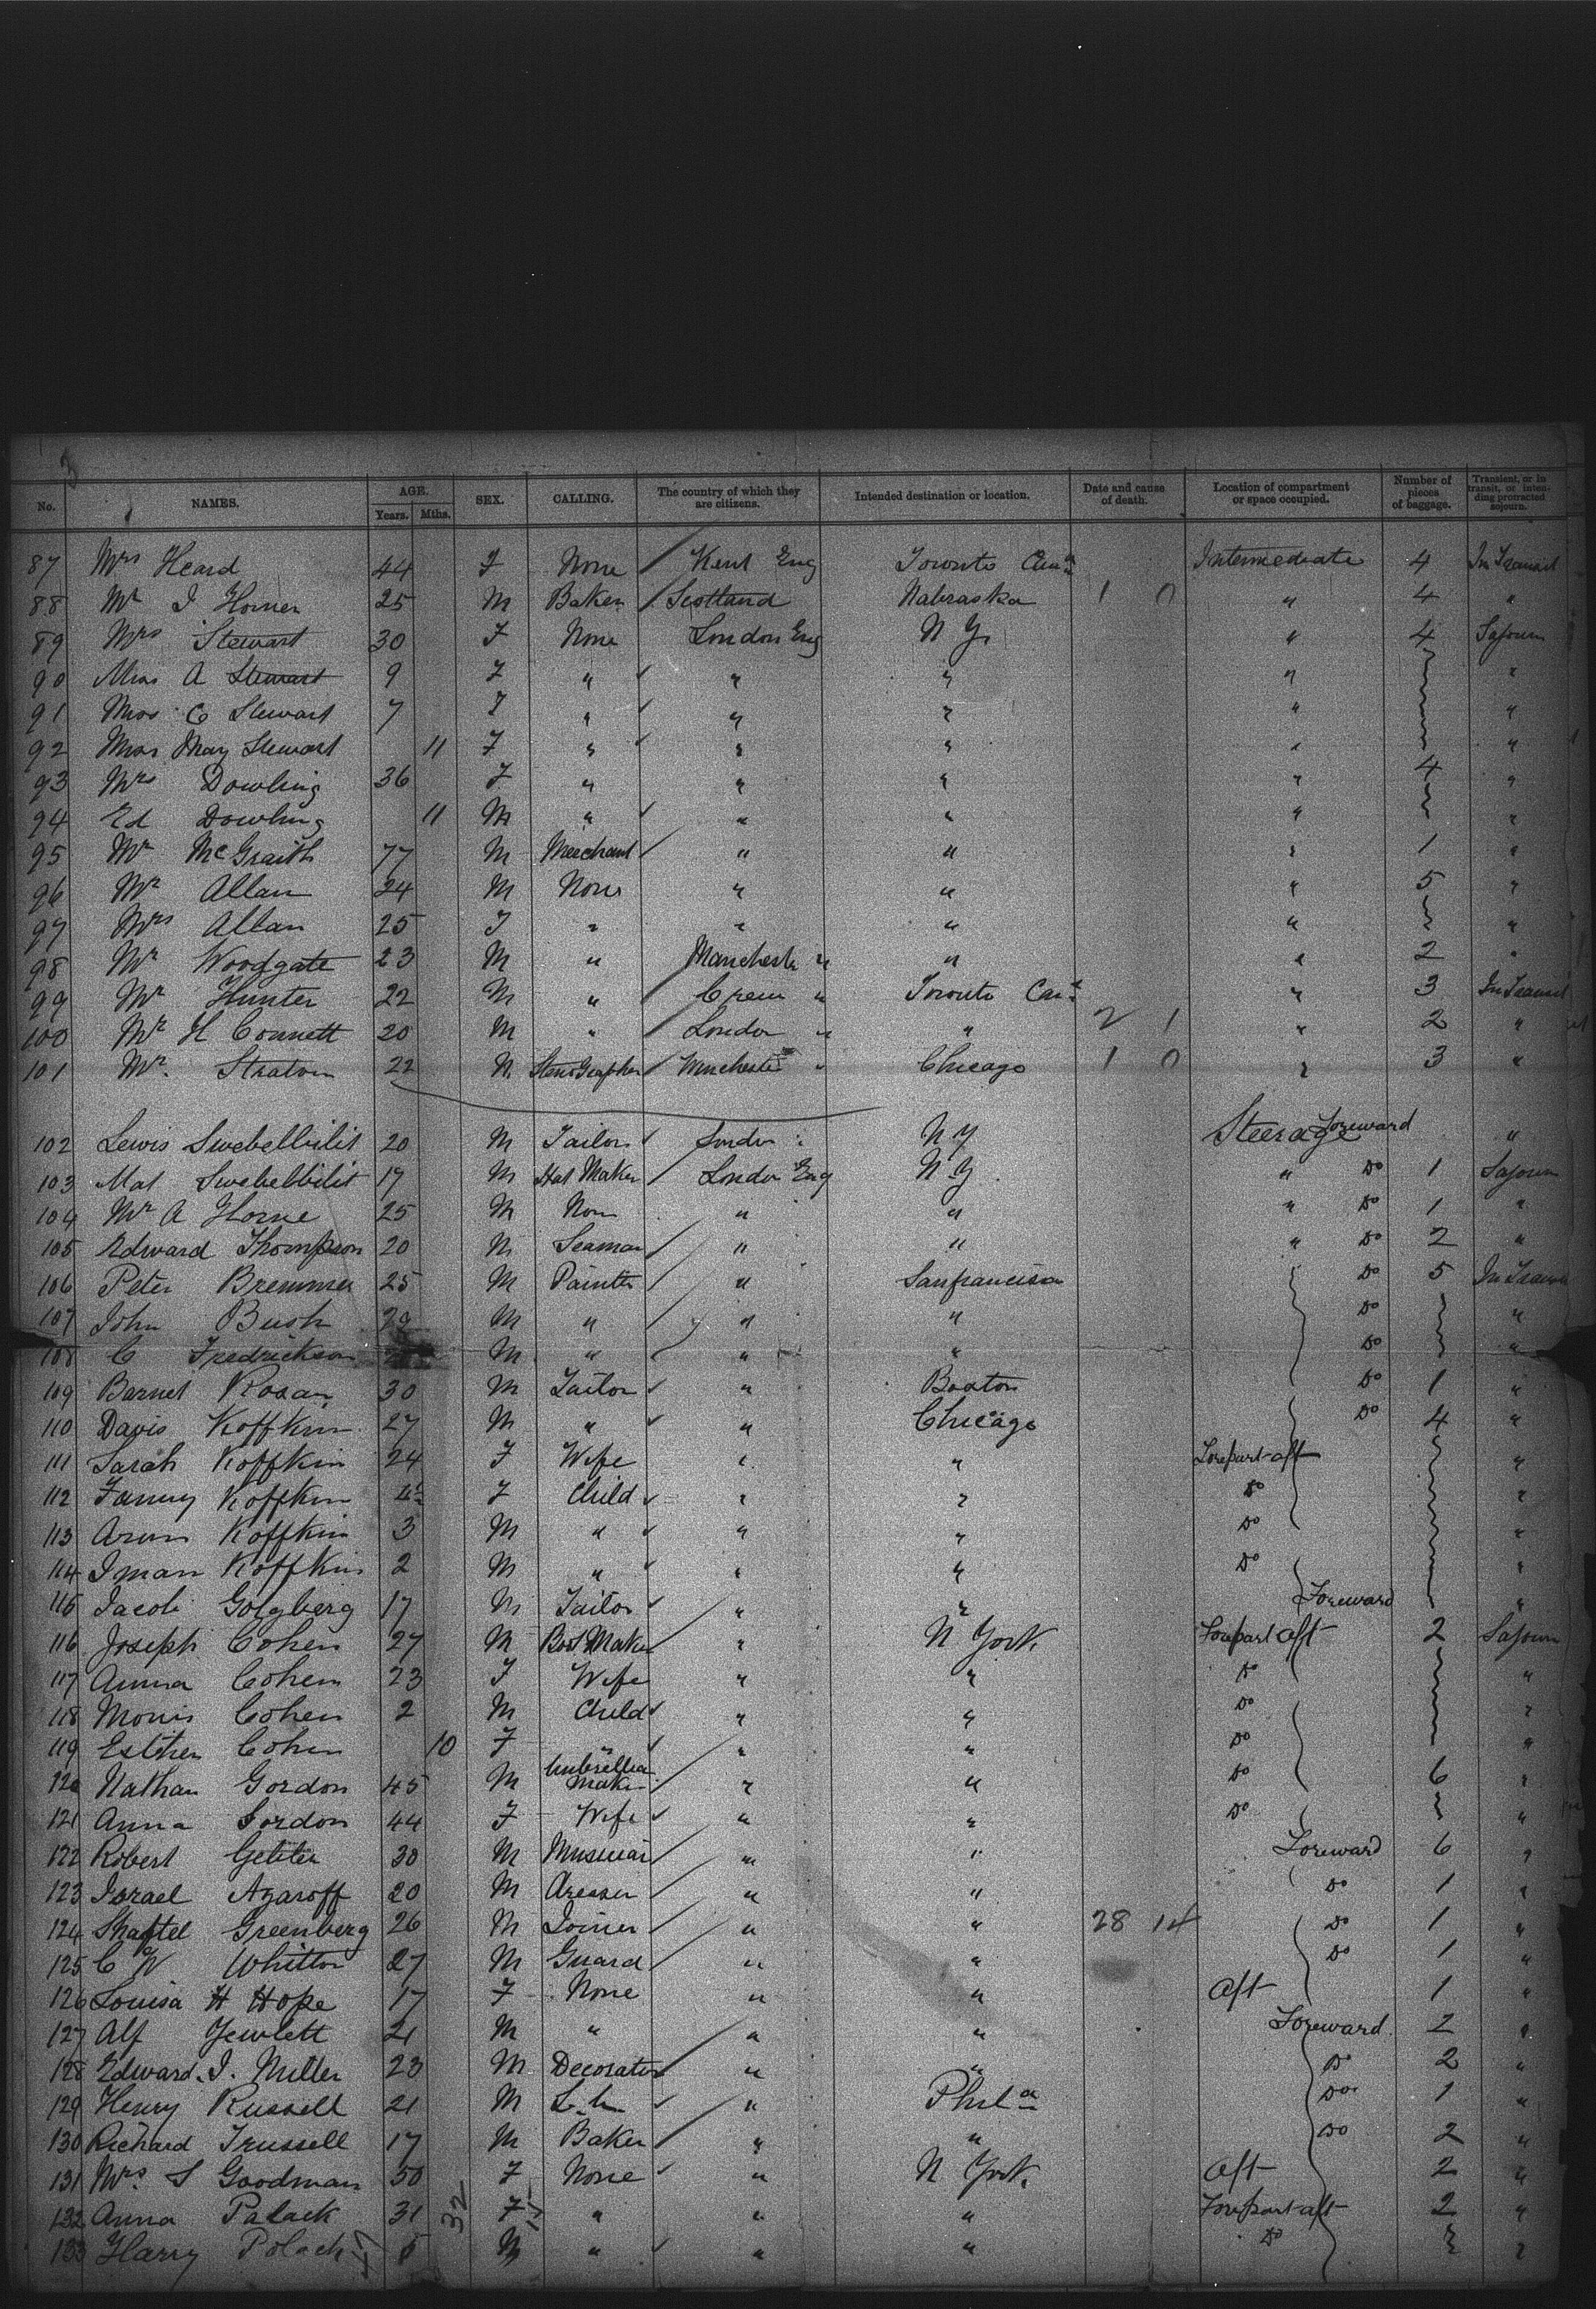 No. NAMES. AGE. Years. Mths. SEX. CALLING. The country of which they are citizens. Intended destination or location. Date and cause of death. Location of compartment or space occupied. Number of pieces of baggage. Transient, or in transit, or intending protracted sojourn.
87 Mrs Heard 44 F None Kent Eng Toronto Can Intermediate 4 In Transit
88 Mr I Horner 25 M Baker Scotland Nabraska 1 0 " 4 "
89 Mrs Stewart 30 F None London Eng N Y. " 4 Sojourn
90 Miss A Stewart 9 F " " " " "
91 Miss C Stewart 7 F " " " " "
92 Miss May Stewart 11 F " " " " "
93 Mrs Dowling 36 F " " " " 4 "
94 Ed Dowling 11 M " " " " "
95 Mr McGraith 77 M Merchant " " " 1 "
96 Mr Allan 24 M None " " " 5 "
97 Mrs Allan 25 F " " " " "
98 Mr Woodgate 23 M " Manchester " " " 2 "
99 Mr Hunter 22 M " " Toronto Can " 3 In Transit
100 Mr H Connett 20 M " London " " 2 1 " 2 "
101 Mr. Straton 22 M StenoGrapher Winchester " Chicago 1 0 " 3 "
102 Lewis Swebelbilit 20 M Tailor London " N Y Steerage Foreward "
103 Mat Swebelbilit 19 M Hat Maker London Eng N Y " Do 1 Sojourn
104 Mr A Horne 25 M Non " " " Do 1 "
105 Edward Thompson 20 M Seaman " " " Do 2 "
106 Peter Bremmer 25 M Painter " Sanfrancisco Do 5 In Transit
107 John Bush 29 M " " " Do "
108 C Fredrickson M " " " Do "
109 Barnet Rosan 30 M Tailor " Boston Do 1 "
110 Davis Koffkin 27 M " " Chicago Do 4 "
111 Sarah Koffkin 24 F Wife " " Forepart aft "
112 Fanny Koffkin 4 F Child " " Do "
113 Arun Koffkin 3 M " " " Do "
114 Iman Koffkin 2 M " " " Do "
115 Jacob Golgberg 17 M Tailor " " Foreward "
116 Joseph Cohen 27 M Boot Maker " N York Forepart aft 2 Sojourn
117 Anna Cohen 23 F Wife " " Do "
118 Morris Cohen 2 M Child " " Do "
119 Esther Cohen 10 F " " " Do "
120 Nathan Gordon 45 M Umbrellia Maker " " Do 6 "
121 Anna Gordon 44 F Wife " " Do "
122 Robert Getiter 30 M " " Foreward 6 "
123 Israel Azaroff 20 M " " Do 1 "
124 Shaftel Greenberg 26 M Joiner " " 28 14 Do 1 "
125 C W Whitton 27 M Guard " " Do 1 "
126 Louisa H Hope 17 F None " " Aft 1 "
127 Alf Jewlett 21 M " " " Foreward 2 "
128 Edward. J. Miller 23 M Decorator " " Do 2 "
129 Henry Russell 21 M " Phila Do 1 "
130 Richard Trussell 17 M Baker " " Do 2 "
131 Mrs. S Goodman 50 F None " N York. Aft 2 "
132 Anna Palack 31 32 F 15 " " " Forepart aft 2 "
133 Harry Polack 47 M " " " Do "